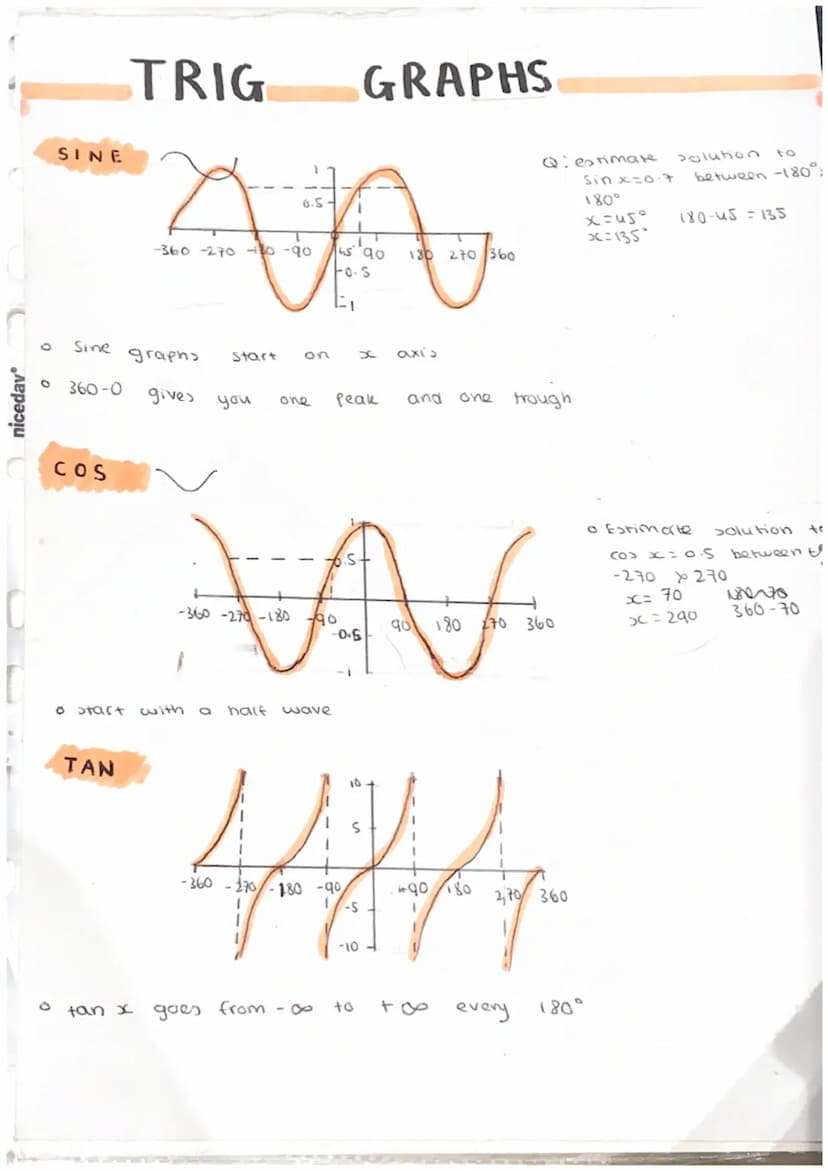 TRIG GRAPHS
SINE
Q: estimate solution to
sin x=0.7 between -180°
180°
x=45° 180-45 =135
x=135°
1
0.5
-360 -270 -180 -90 45° 90 180 270 360
-0.5
-1
o Sine graphs start on x axis
o 360-0 gives you one peak and one trough
niceday®
COS
o Estimate solution to
cos x=0.5 between
-270 270
x= 70
x= 290 360-70
1
0.5
-360 -270 -180 -90 90 180 270 360
-0.5
-1
o start with a half wave
TAN
10
5
-360 -270 -180 -90 +90 180 270 360
-5
-10
o tan x goes from -∞ to +∞ every 180°